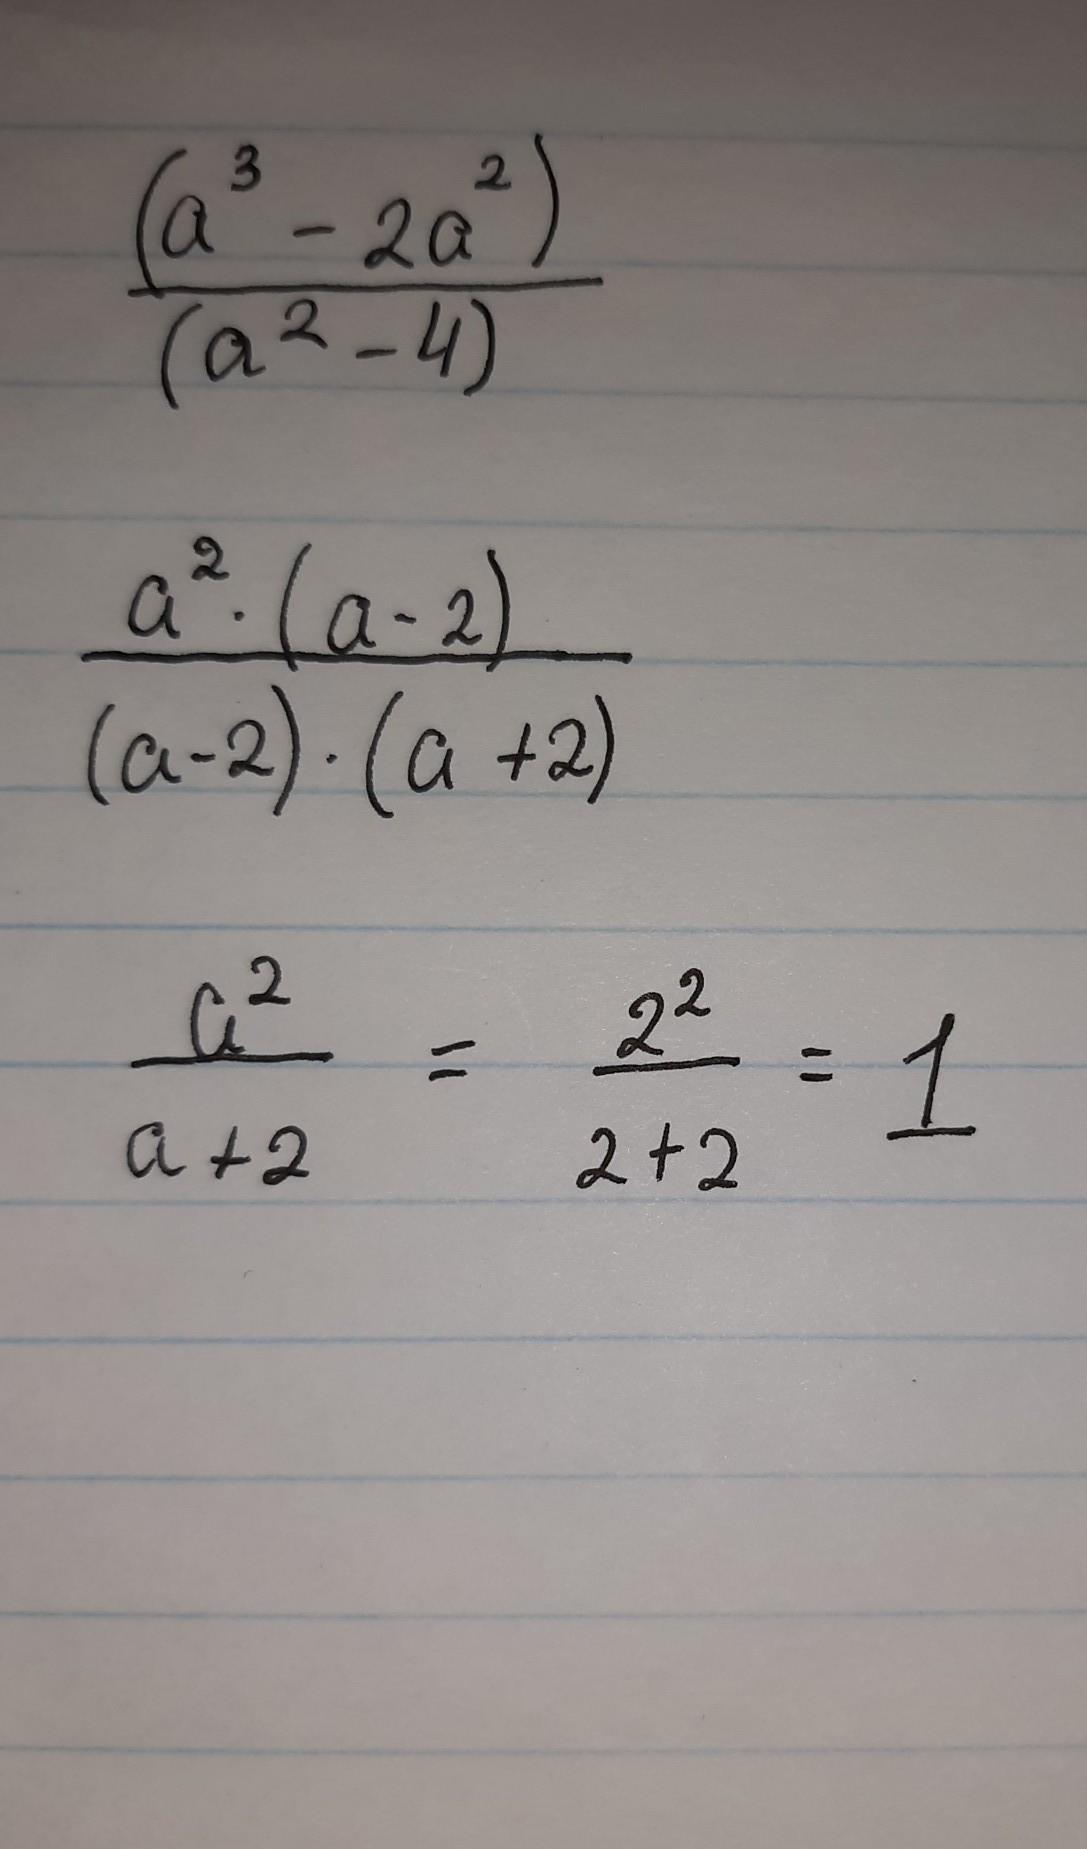 (a³ - 2a²)
(a² - 4)
a² · (a - 2)
(a - 2) · (a + 2)
a² / a + 2 = 2² / 2 + 2 = 1